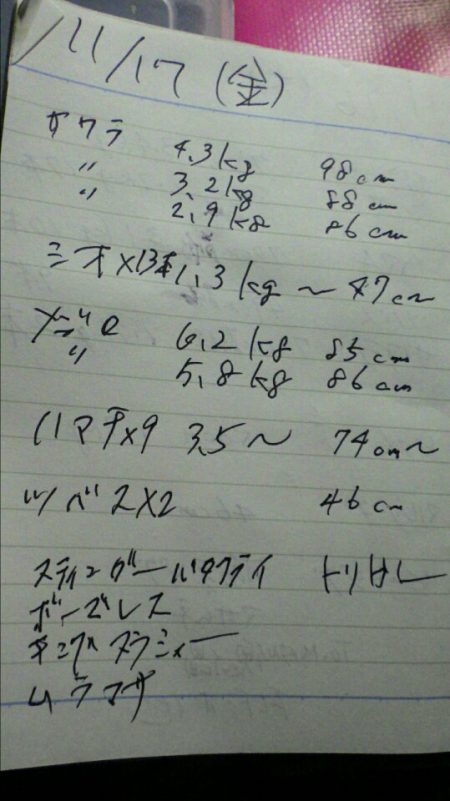 11/17 (金)
サワラ 4.3kg 98cm
〃 3.2kg 88cm
〃 2.9kg 86cm
ニ才×13本 1.3kg〜47cm
メジロ 6.2kg 85cm
〃 5.8kg 86cm
ハマチ×9 3.5〜 74cm〜
ツバス×2 46cm
スティンガーバタフライ
ボーズレス
キングスラッシャー
ムラマサ